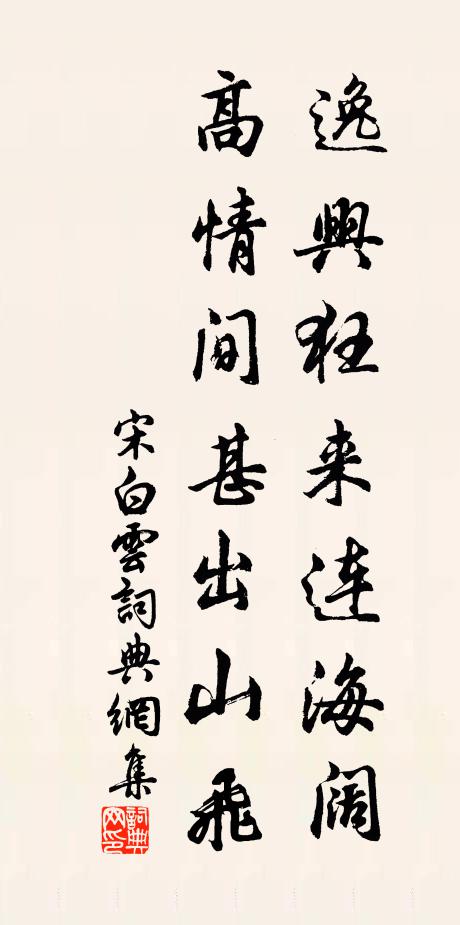 逸興狂来連海阔
髙情间甚出山飛
宋白雲詞典網集
詞典网印